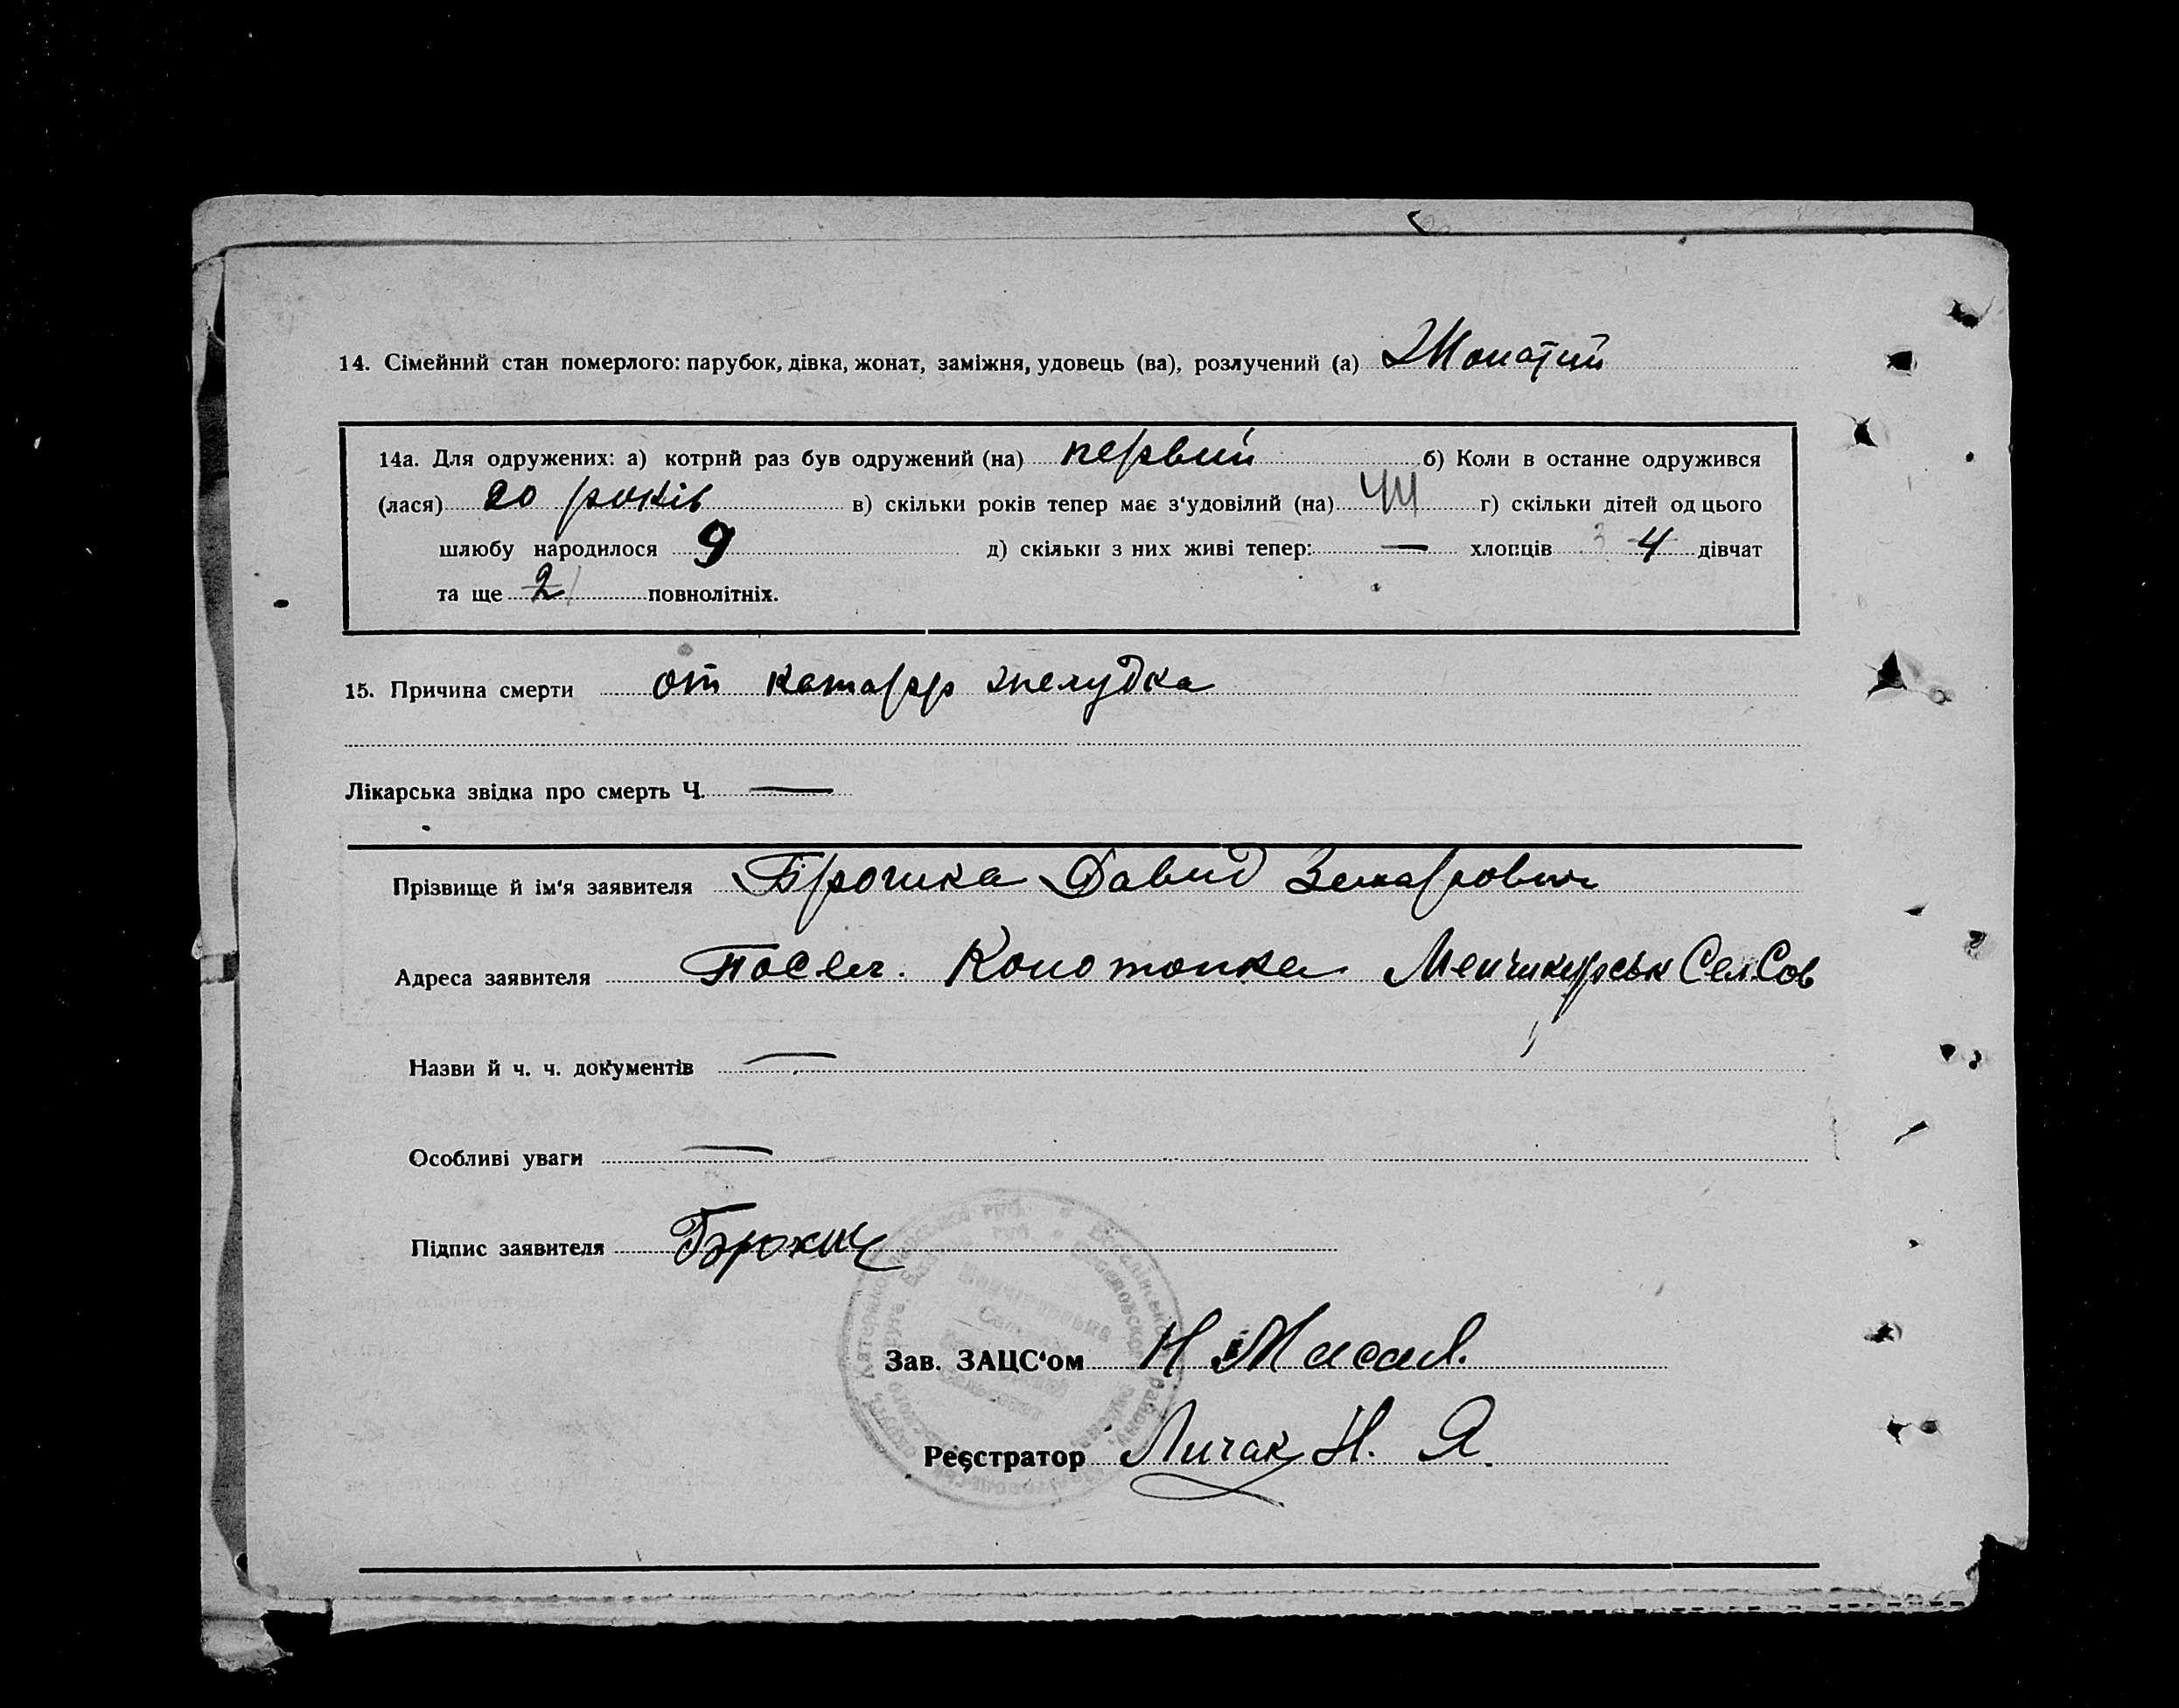 14. Сімейний стан померлого: парубок, дівка, жонат, заміжня, удовець (ва), розлучений (а) Жонатий
14а. Для одружених: а) котрий раз був одружений (на) первий б) Коли в останнє одружився
(лася) 20 років в) скільки років тепер має з‘удовілий (на) 44 г) скільки дітей од цього
шлюбу народилося 9 д) скільки з них живі тепер: — хлопців 3 4 дівчат
та ще 2 повнолітніх.
15. Причина смерти от катарр желудка
Лікарська звідка про смерть Ч. —
Прізвище й ім‘я заявителя Давид
Адреса заявителя Посел. Конотопка Менчикурськ СелСов
Назви й ч. ч. документів —
Особливі уваги —
Підпис заявителя
Зав. ЗАЦС‘ом Н
Реєстратор Личак Н. Я.